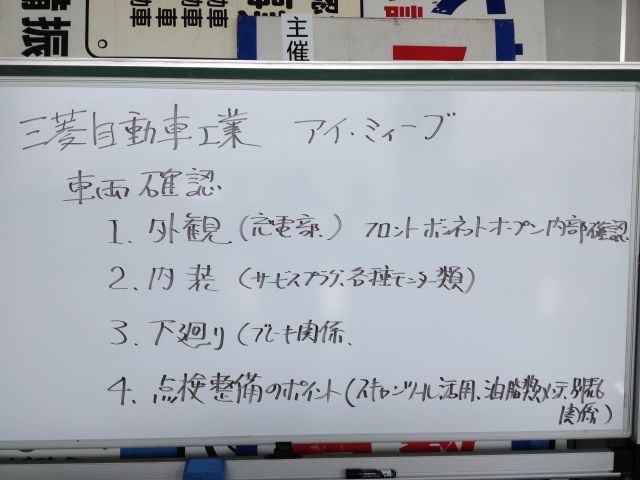 績振
動車
動車
動車
主催
三菱自動車工業 アイ・ミィーブ
車両確認
1. 外観(充電部、) フロントボンネットオープン内部確認
2. 内装 (サービスプラグ、各種モニター類)
3. 下廻り(ブレーキ関係、
4. 点検整備のポイント(スキャンツール活用、油脂類メンテ、
関係)